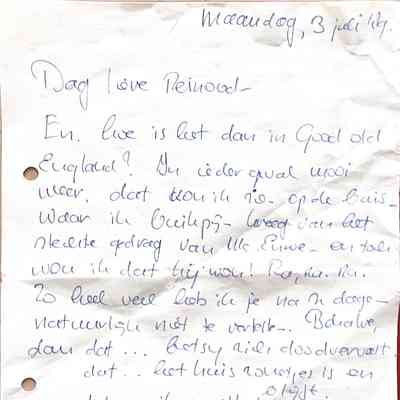 Maandag, 3 juli
Dag lieve Reinoud-
En, hoe is het dan in Good old
England? In ieder geval mooi
weer, dat kon ik zo- op de buis-
waar ik buikpijn- kreeg van het
slechte gedrag van Mc.Enroe- en toch
wou ik dat hij won! Ra, ra, ra.
Zo heel veel heb ik je na 'n dag-
natuurlijk niet te vertellen. Behalve,
dan dat ... Betsy zich doodverveelt.
dat .. het huis zonetjes is en